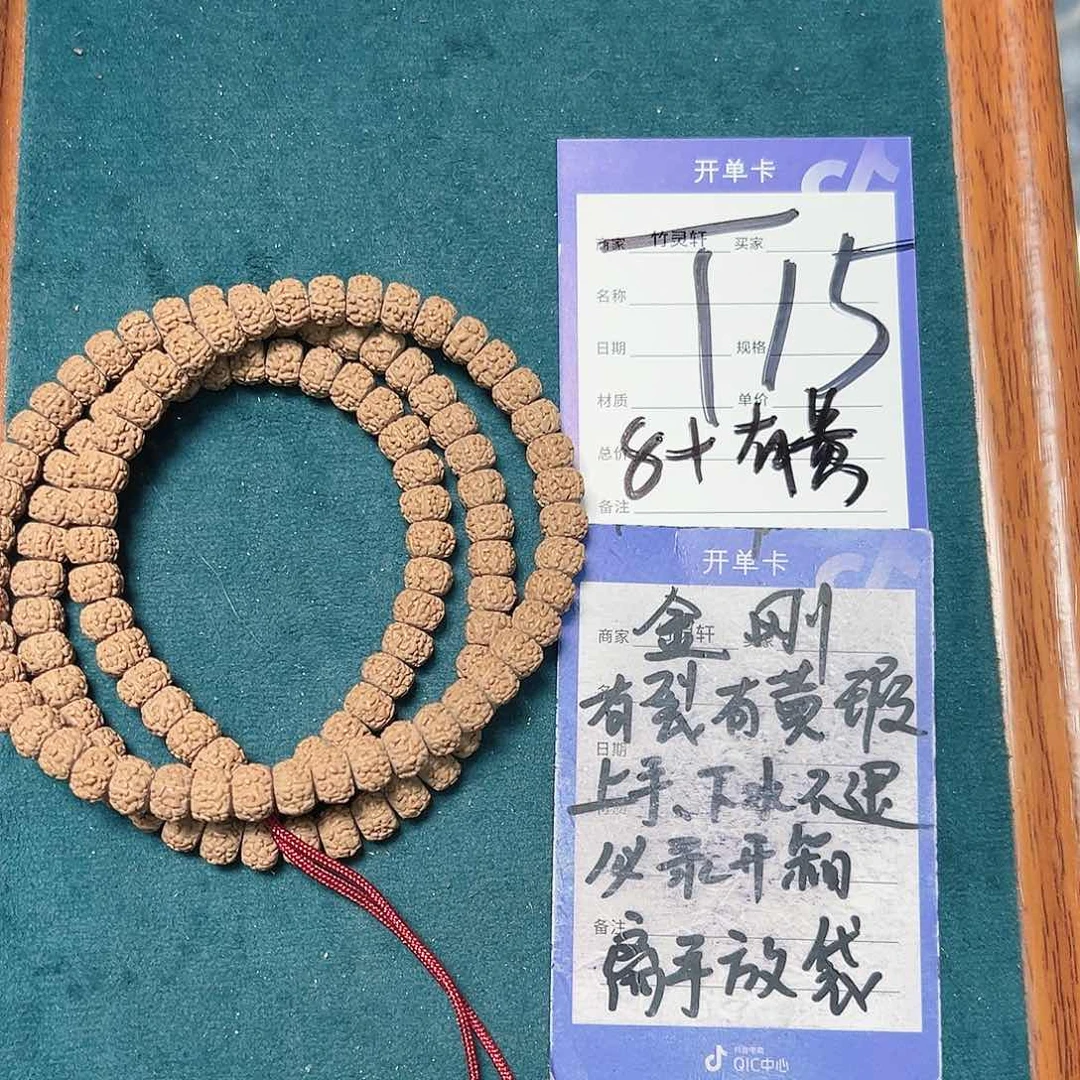 开单卡
商家 竹灵轩 买家
T15
名称
日期 规格
材质 单价
8+有黄
总价
备注
开单卡
金刚
商家 轩 买家
有裂有黄瑕
日期
上手、下水不退
必录开箱
备注
离手放袋
抖音电商
QIC中心